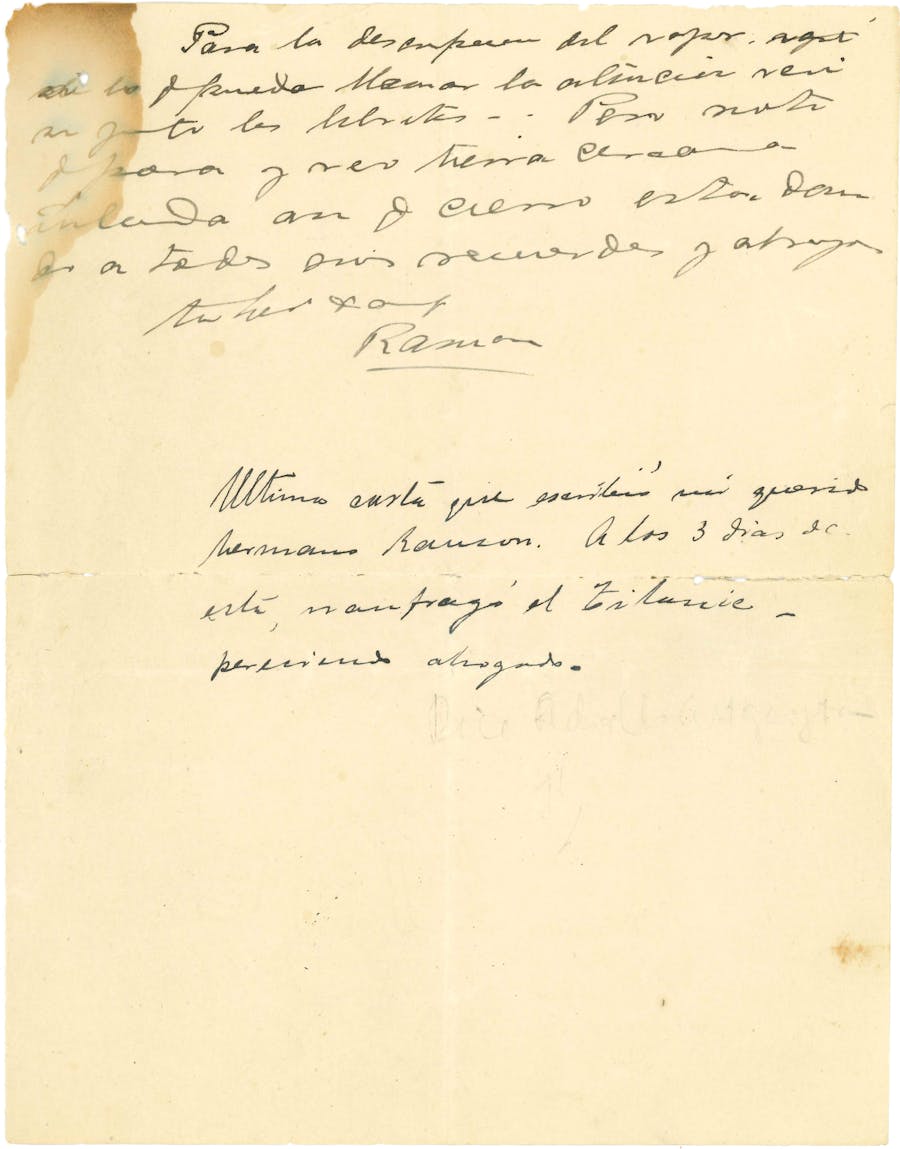 Para la descripcion del vapor, aqui
de lo q pueda llamar la atencion veri
se junto las libretas - - Pero noto
q para y veo tierra cercana
Irlanda asi q cierro esta. Dan
les a todos mis recuerdos y abrazos
tu her
Ramon
Ultima carta que escribió mi querido
hermano Ramon. A los 3 dias de
esta, naufragó el Titanic -
pereciendo ahogado.